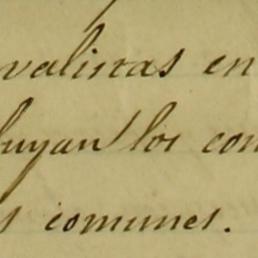 valistas en
luyan los con
s comunes.